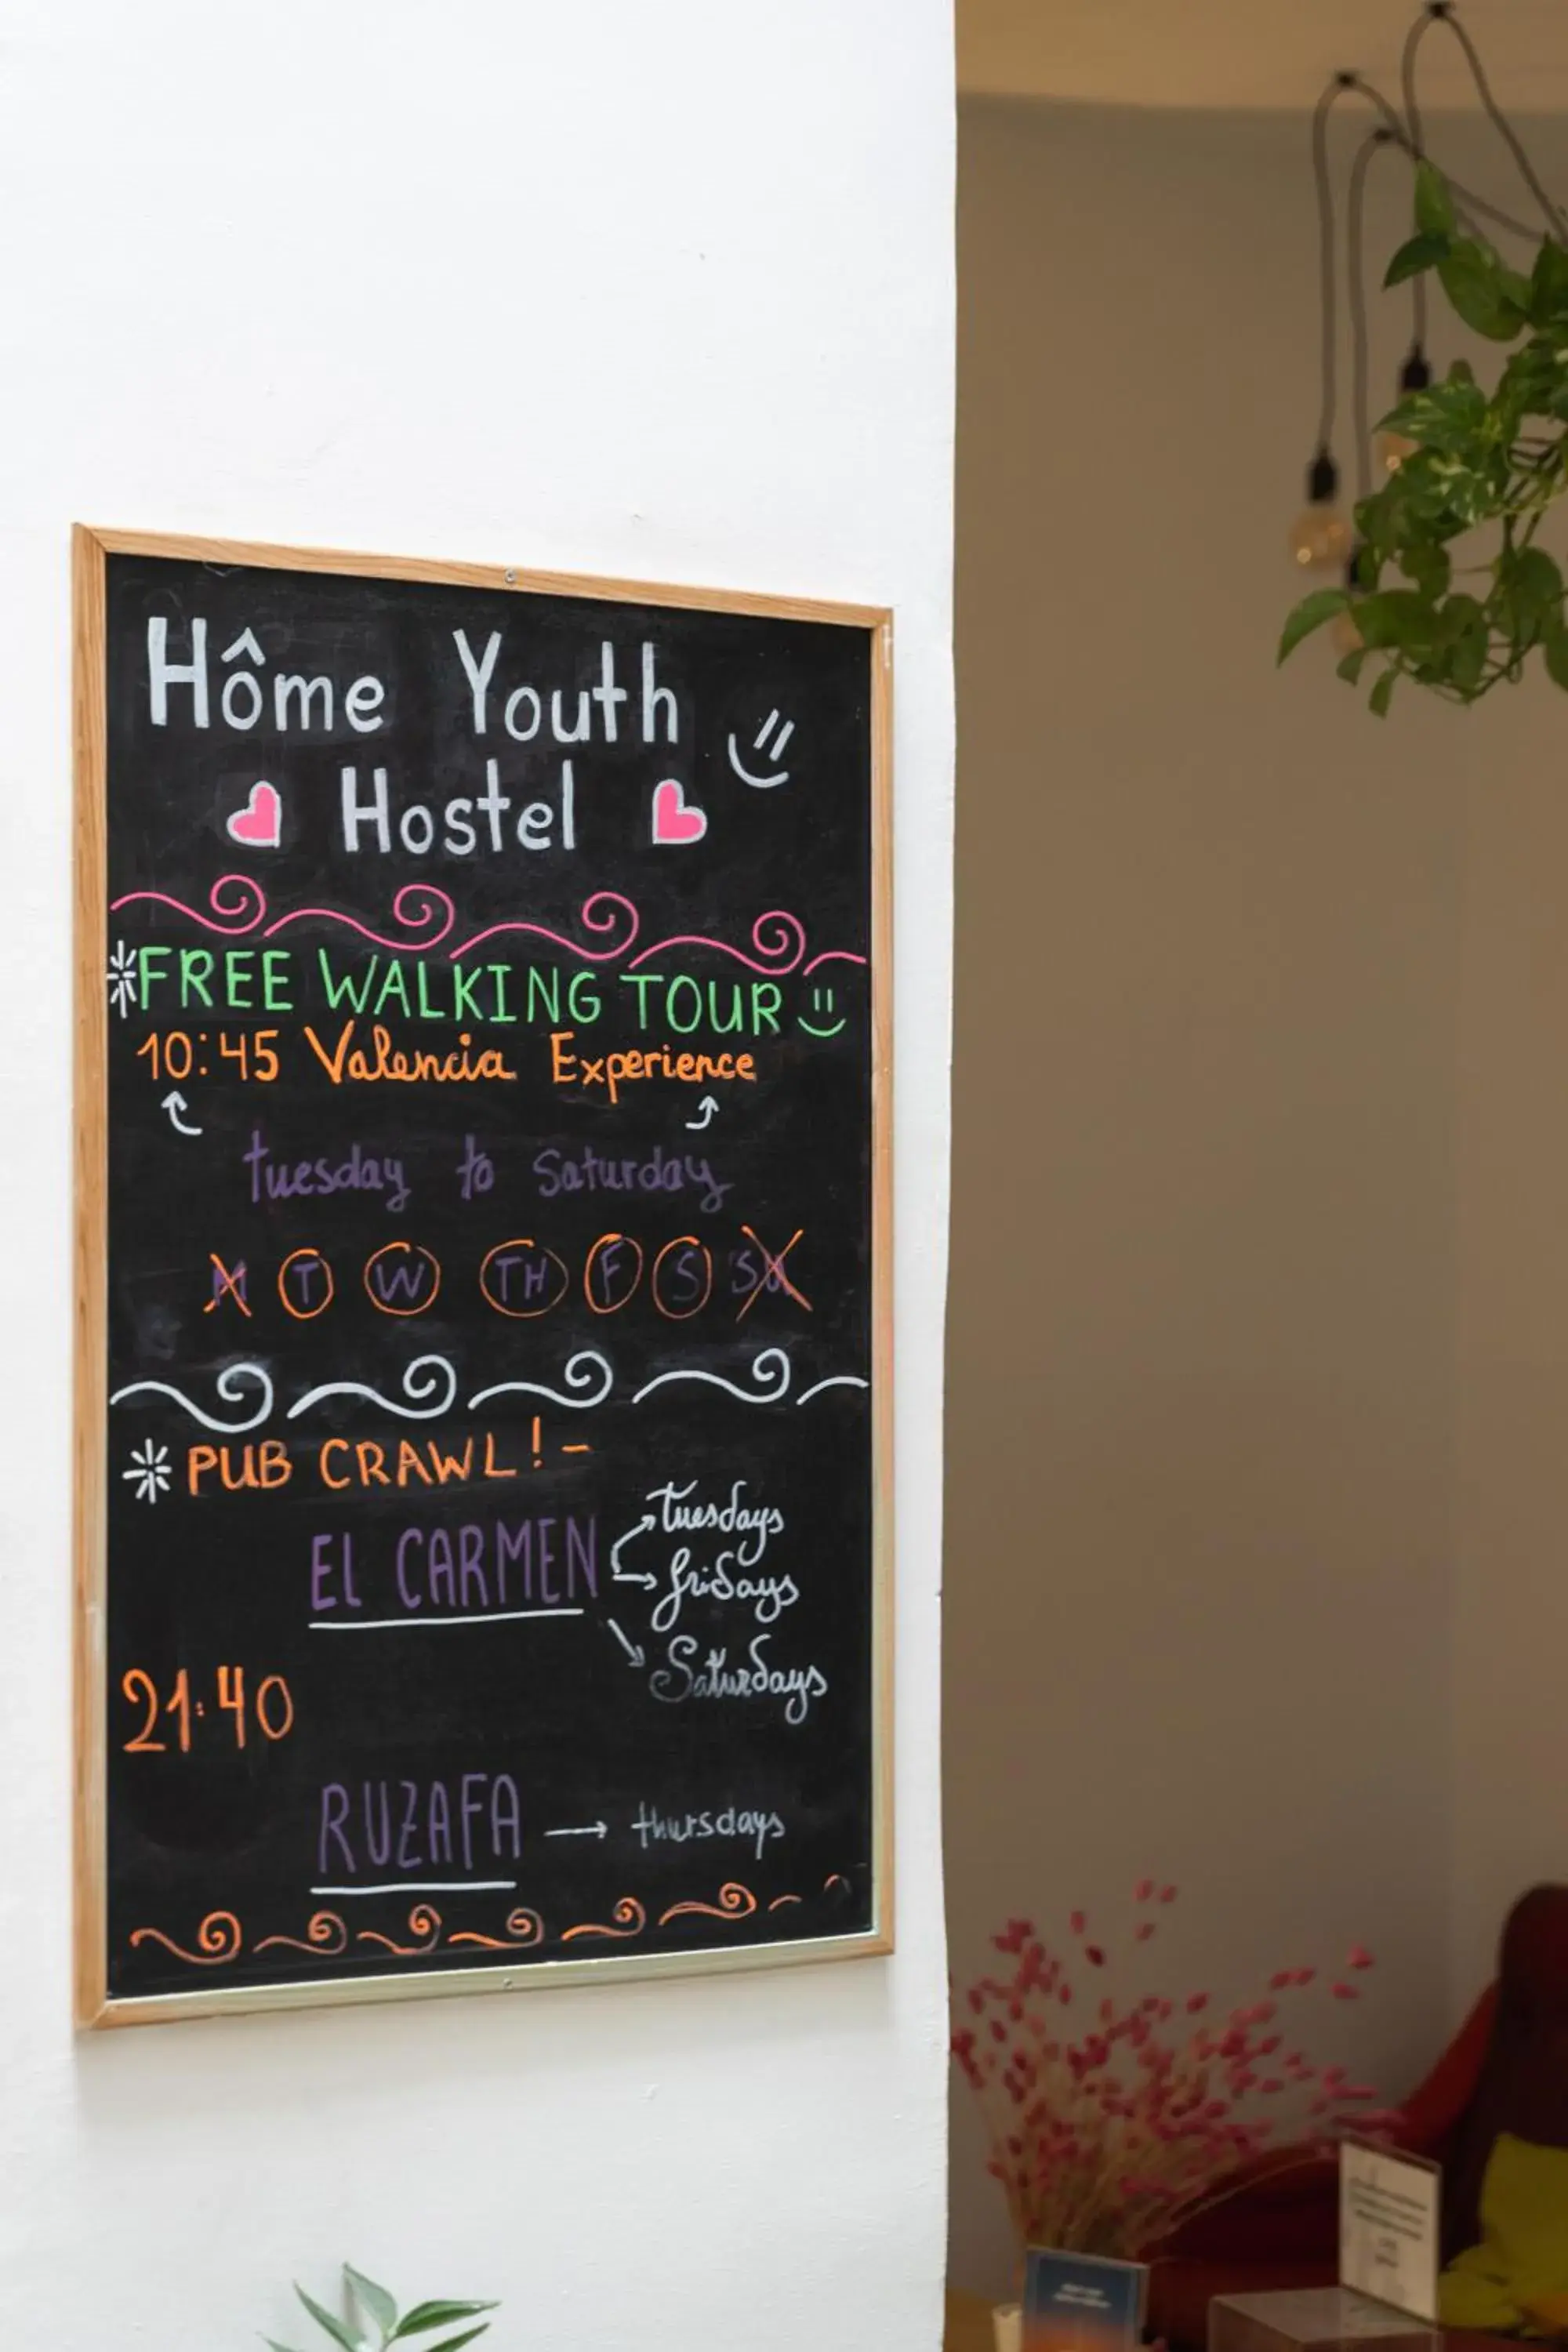 Hôme Youth
Hostel
FREE WALKING TOUR
10:45 Valencia Experience
tuesday to saturday
M T W TH F S SU
PUB CRAWL! -
EL CARMEN
tuesdays
fridays
Saturdays
21:40
RUZAFA → thursdays